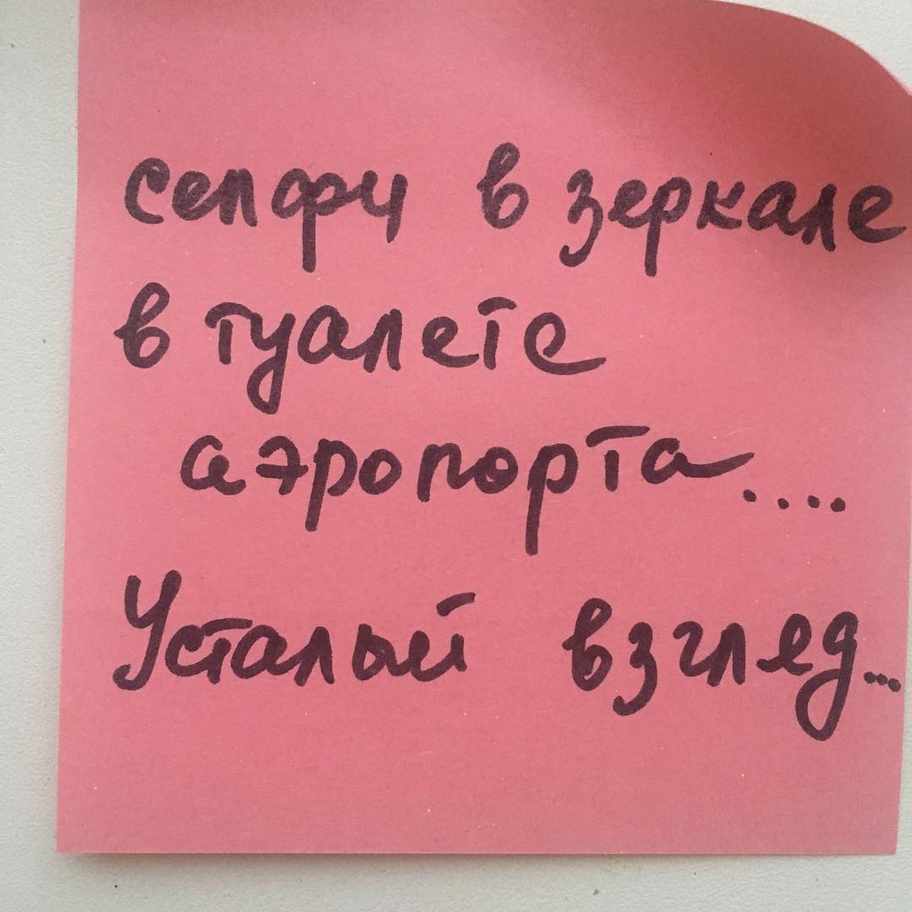 селфи в зеркале
в туалете
аэропорта....
Усталый взглед...